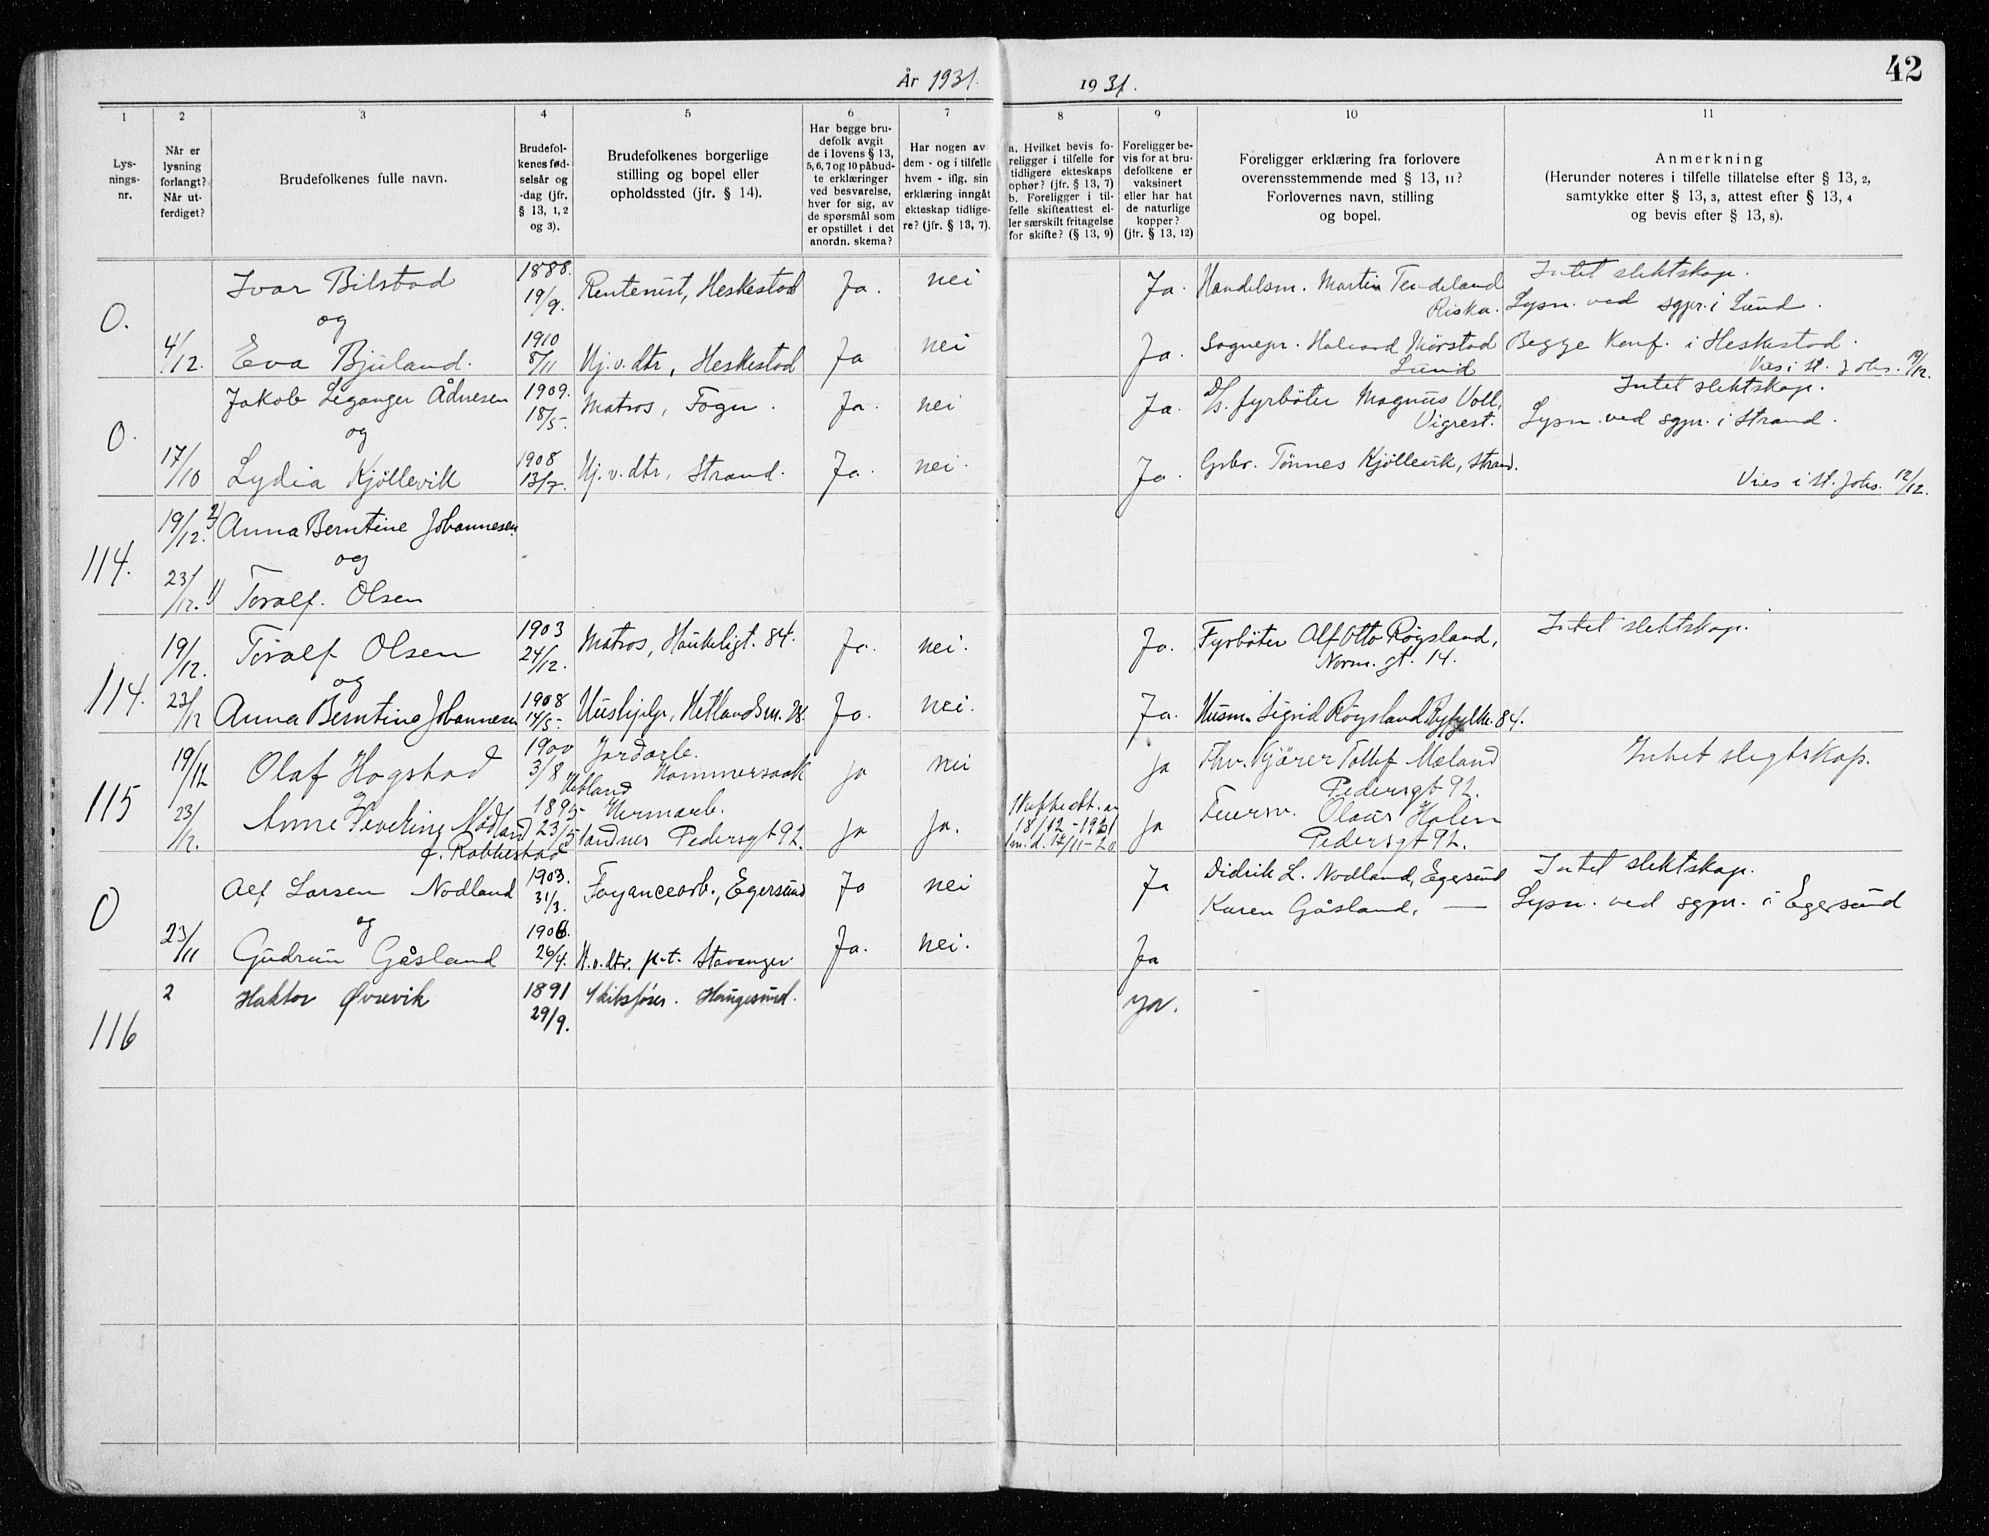 År 1931.
1931.
42
1 2 3 4 5 6 7 8 9 10 11
Lys-
nings-
nr.
Når er
lysning
forlangt?
Når ut-
ferdiget?
Brudefolkenes fulle navn.
Brudefol-
kenes fød-
selsår og
-dag (jfr.
§ 13, 1, 2
og 3).
Brudefolkenes borgerlige
stilling og bopel eller
opholdssted (jfr. § 14).
Har begge bru-
defolk avgit
de i lovens § 13,
5, 6, 7 og 10 påbud-
te erklæringer
ved besvarelse,
hver for sig, av
de spørsmål som
er opstillet i det
anordn. skema?
Har nogen av
dem - og i tilfelle
hvem - iflg. sin
erklæring inngåt
ekteskap tidlige-
re? (jfr. § 13, 7).
a. Hvilket bevis fo-
religger i tilfelle for
tidligere ekteskaps
ophør? (jfr. § 13, 7)
b. Foreligger i til-
felle skifteattest el-
ler særskilt fritagelse
for skifte? (§ 13, 9)
Foreligger be-
vis for at bru-
defolkene er
vaksinert
eller har hat
de naturlige
kopper?
(jfr. § 13, 12)
Foreligger erklæring fra forlovere
overensstemmende med § 13, 11?
Forlovernes navn, stilling
og bopel.
Anmerkning
(Herunder noteres i tilfelle tillatelse efter § 13, 2,
samtykke efter § 13, 3, attest efter § 13, 4
og bevis efter § 13, 8).
0.
Ivar Bilstad 1888. 19/9. Rentenist, Heskestad Ja. nei Ja. Handelsm. Martin Tendeland Riska. Intet slektskap.
Lysn. ved sgpr. i Lund.
og
4/12. Eva Bjuland. 1910 8/11 Hj.v.dtr, Heskestad Ja nei Ja. Sognepr. Halvard Mørstad Lund Begge Konf. i Heskestad.
Vies i st. Johs. 19/12.
0.
Jakob Leganger Ådnesen 1909. 18/5- Matros, Fogn. Ja. nei Ja. D/s. fyrbøter Magnus Voll, Vigrest. Intet slektskap.
Lysn. ved sgpr. i Strand.
og
17/10 Lydia Kjöllevik 1908 13/7. Hj.v.dtr, Strand. Ja. nei. Ja. Gbr. Tönnes Kjöllevik, Strand.
Vies i st. Johs. 12/12.
114.
19/12. 2) Anna Berntine Johannesen
og
23/12. 1) Toralf. Olsen
114.
19/12. Toralf Olsen 1903 24/12. Matros, Haukeligt. 84. Ja. nei. Ja. Fyrböter Alf Otto Røysland, Norm. gt. 14. Intet slektskap.
og
23/12 Anna Berntine Johannesen 1908 14/5- Hushjelp, Hetlandsm. 28. Ja. nei. Ja. Husm. Sigrid Røysland Ryfylke. 84.
115
19/12 Olaf Hogstad 1900 3/8 Jordarb. Hommersaak Hetland ja nei ja Fhv. Kjörer Tollef Mæland Pedersgt 92. Intet slegtskap.
23/12. Anne Severine Nödland f. Rabbestad 1895- 23/5 Hermarb. Pedersgt 92. ja ja. 18/12-1931 ja Olaus Holen Pedersgt 92.
0
Alf Larsen Nodland 1903. 31/3. Fayancearb., Egersund Ja nei Ja Didrik L. Nodland, Egersund Intet slektskap.
Karen Gåsland, — Lysn. ved sgpr. i Egersund
og
23/11 Gudrun Gåsland 1906. 26/4. H.v.dtr. p.t. Stavanger. Ja. nei. Ja
116
2 Haktor Øvrevik 1891 29/9. Skibsfører. Haugesund. ja.